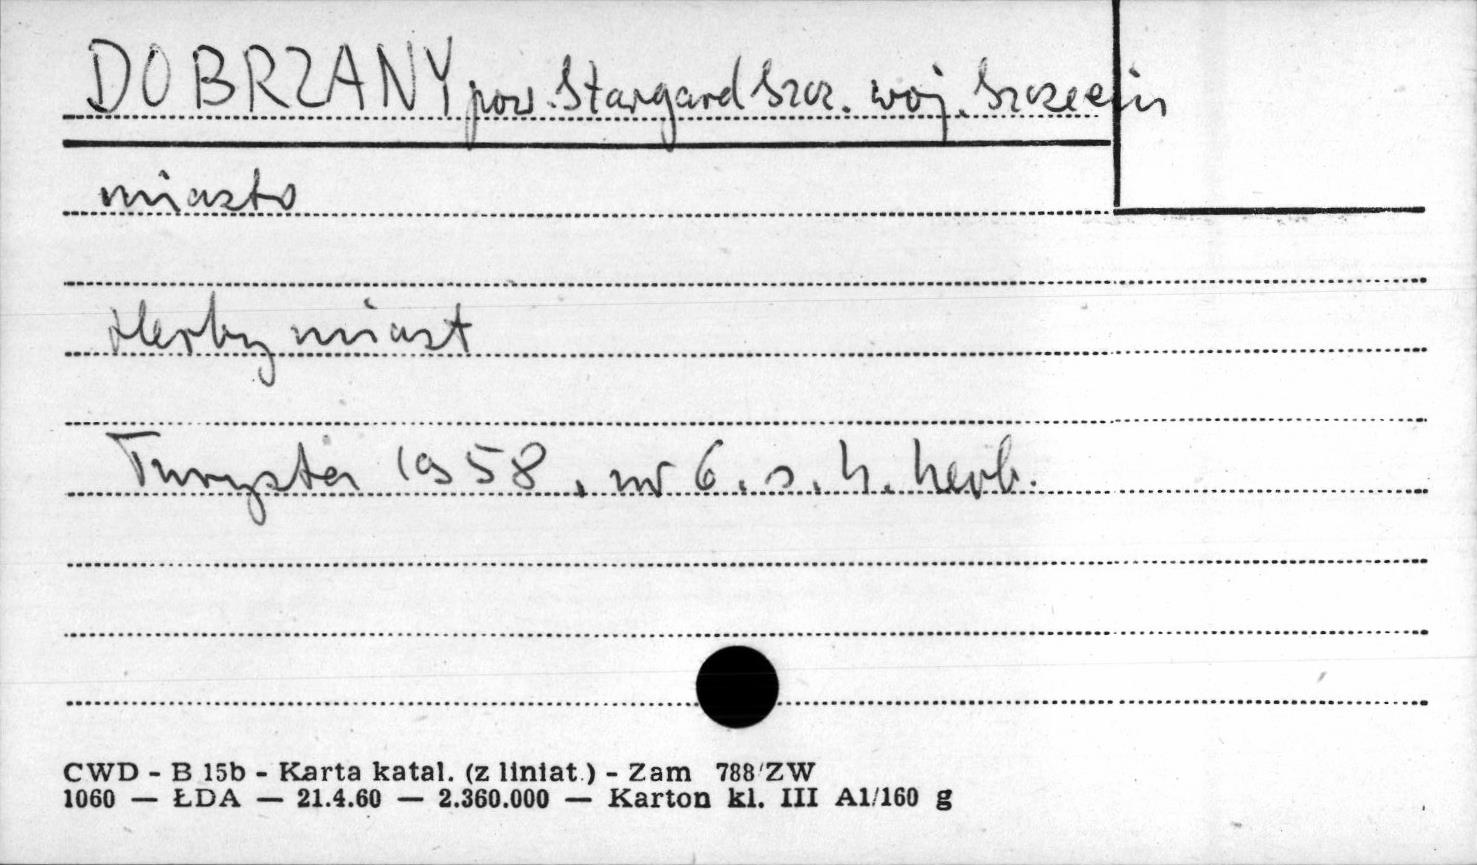 DOBRZANY pow. Stargard Szcz. woj. Szczecin
miasto
Herby miast
Turysta 1958, nr 6. s. 4. herb.
CWD - B 15b - Karta katal. (z liniat.) - Zam 788/ZW
1060 — ŁDA — 21.4.60 — 2.360.000 — Karton kl. III A1/160 g